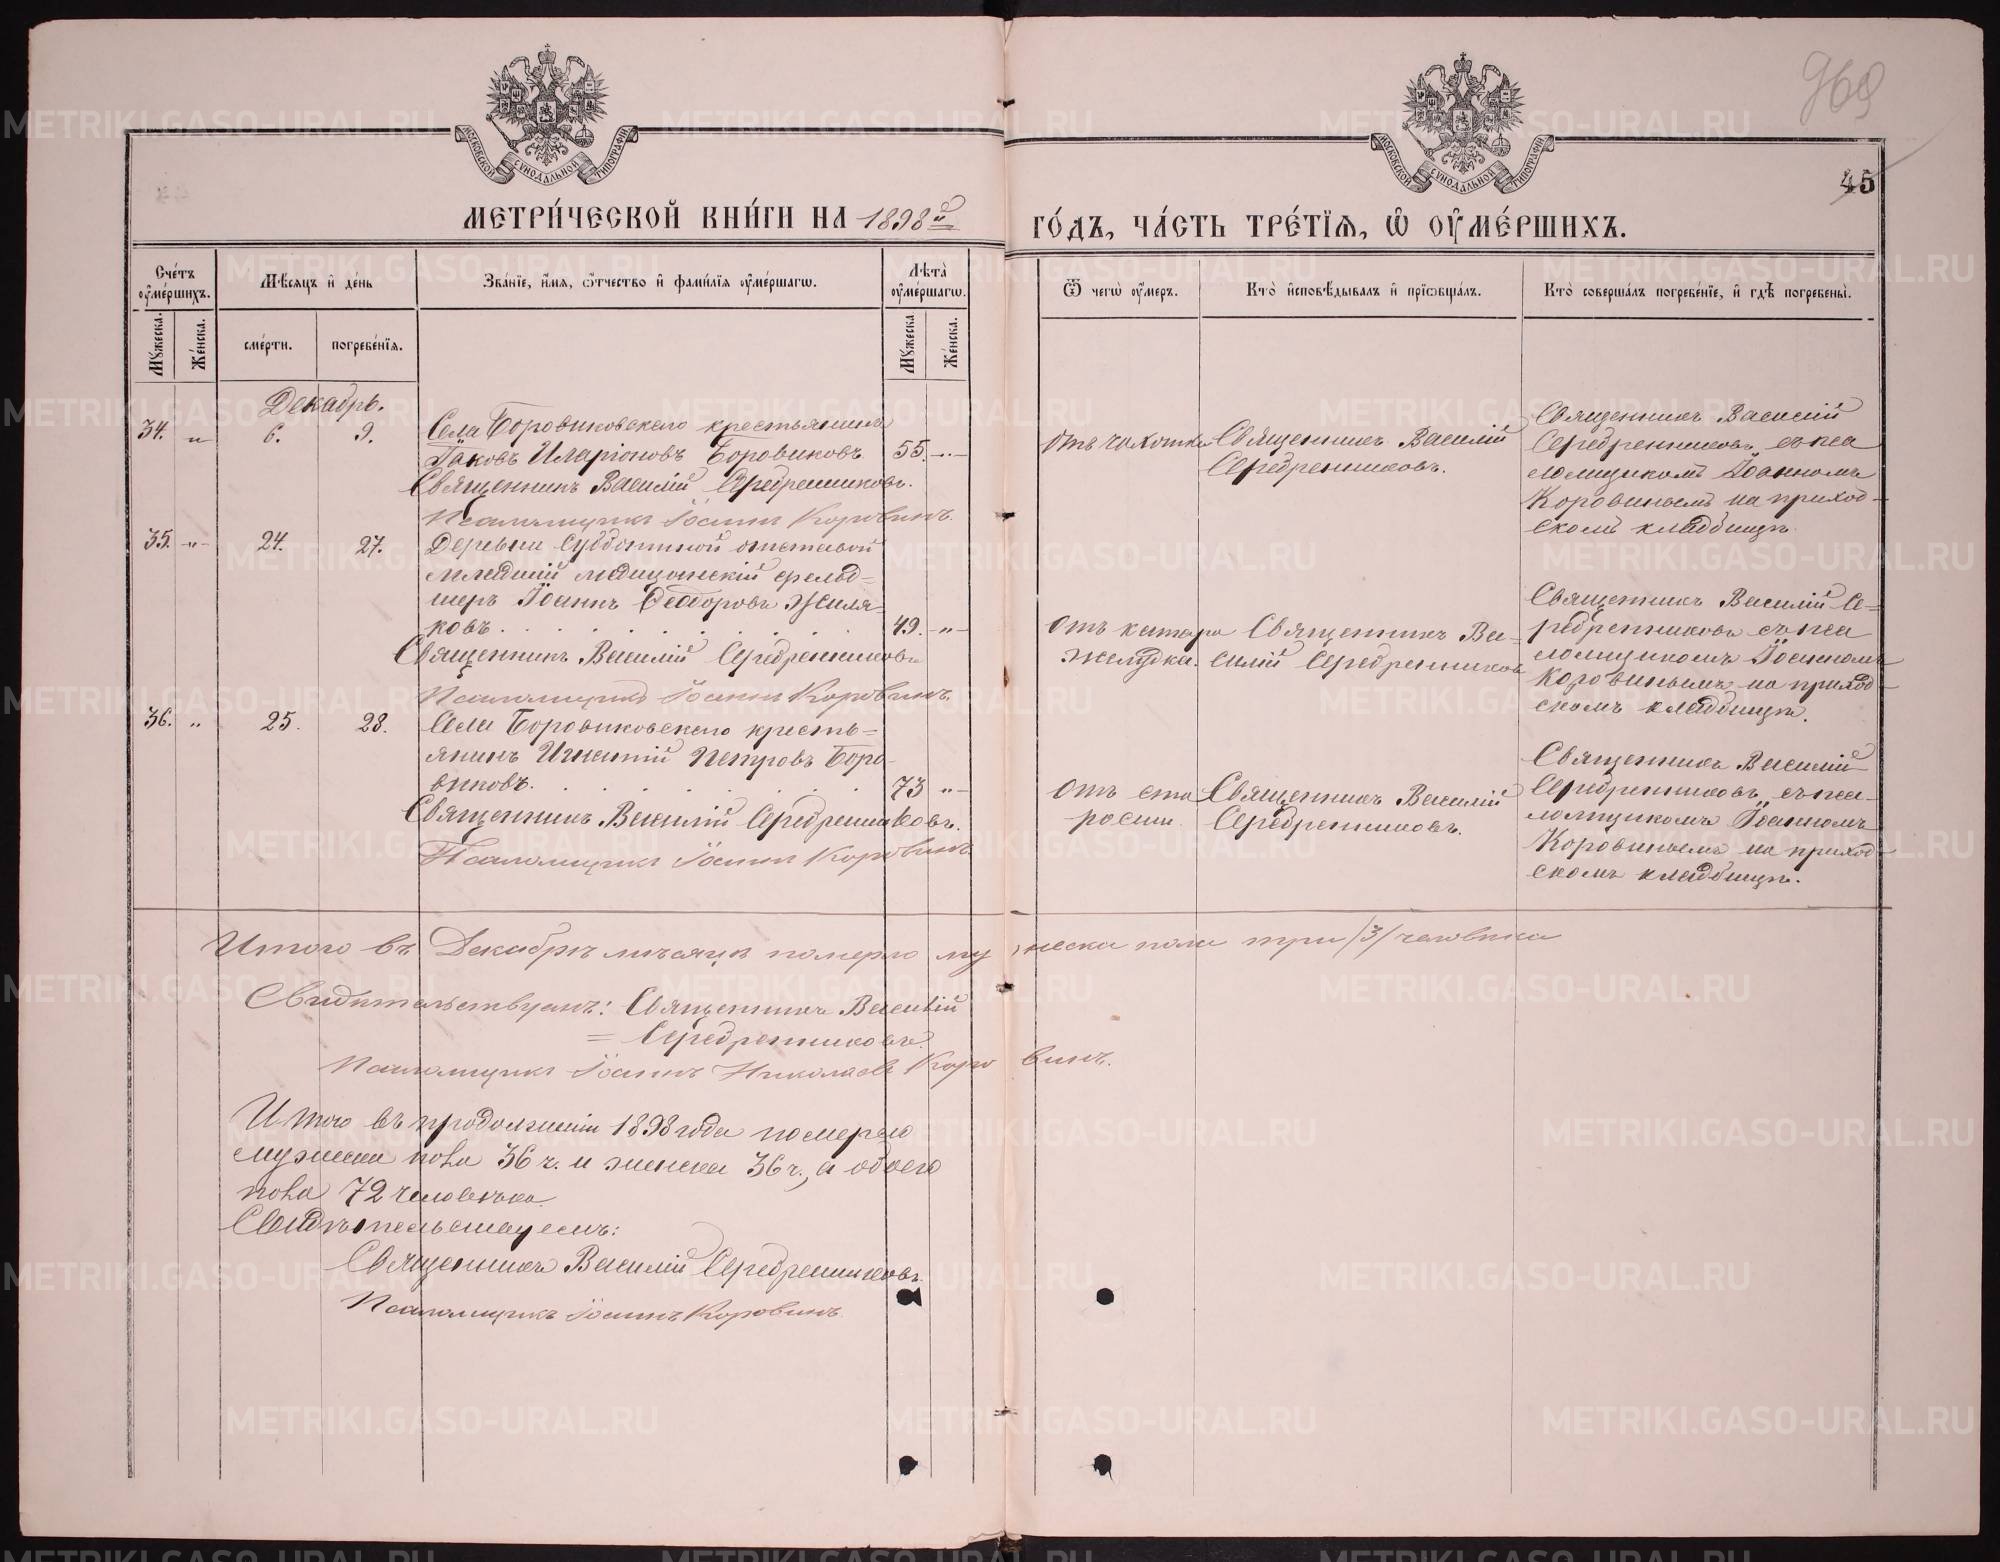 969
45
МОСКОВСКОЙ СУНОДАЛЬНОЙ ТИПОГРАФИИ
МОСКОВСКОЙ СУНОДАЛЬНОЙ ТИПОГРАФИИ
МЕТРИ́ЧЕСКОЙ КНИ́ГИ НА 1898й ГО́ДЪ, ЧА́СТЬ ТРЕ́ТІѦ, Ѡ ОУМЕ́РШИХЪ.
Счétъ оумéршихъ.
Мѣсяцъ и дéнь
Звáніе, имя, óтчество и фамилія оумéршагѡ.
Лѣта оумéршагѡ.
Ѿ чегѡ оумер.
Кто исповѣдывалъ и пріобщалъ.
Кто совершалъ погребéніе, и гдѣ погребены.
Мужеска.
Жéнска.
смéрти.
погребéнія.
Мужеска
Жéнска.
Декабрь.
34. " 6. 9. Села Боровиковскаго крестьянинъ
Іаковъ Иларіоновъ Боровиковъ 55. "
Священникъ Василій Серебренниковъ.
Псаломщикъ Іоаннъ Коровинъ.
отъ чахотки
Священникъ Василій
Серебренниковъ.
Священникъ Василій
Серебренниковъ съ пса
ломщикомъ Іоанномъ
Коровинымъ на приход-
скомъ кладбищѣ.
35. " 24. 27. Деревни Субботиной отставной
младшій медицинскій фельд=
шеръ Іоаннъ Ѳеодоровъ Жиля-
ковъ. 49. "
Священникъ Василій Серебренниковъ
Псаломщикъ Іоаннъ Коровинъ.
Отъ катара
желудка.
Священникъ Ва-
силій Серебренниковъ
Священникъ Василій Се=
ребренниковъ съ пса
ломщикомъ Іоанномъ
Коровинымъ на приход-
скомъ кладбищѣ.
36. " 25. 28. Села Боровиковскаго кресть=
янинъ Игнатій Петровъ Боро-
виковъ. 73 "
Священникъ Василій Серебренниковъ.
Псаломщикъ Іоаннъ Коровинъ
Отъ ста
рости.
Священникъ Василій
Серебренниковъ.
Священникъ Василій
Серебренниковъ съ пса-
ломщикомъ Іоанномъ
Коровинымъ на приход-
скомъ кладбищѣ.
Итого въ Декабрѣ мѣсяцѣ померло мужеска пола три /3/ человѣка
Свидѣтельствуемъ: Священникъ Василій
= Серебренниковъ.
Псаломщикъ Іоаннъ Николаевъ Коровинъ.
Итого въ продолженіи 1898 года померло
мужеска пола 36 ч. и женска 36 ч., а обоего
пола 72 человѣка.
Свидѣтельствуемъ:
Священникъ Василій Серебренниковъ.
Псаломщикъ Іоаннъ Коровинъ.
METRIKI.GASO-URAL.RU